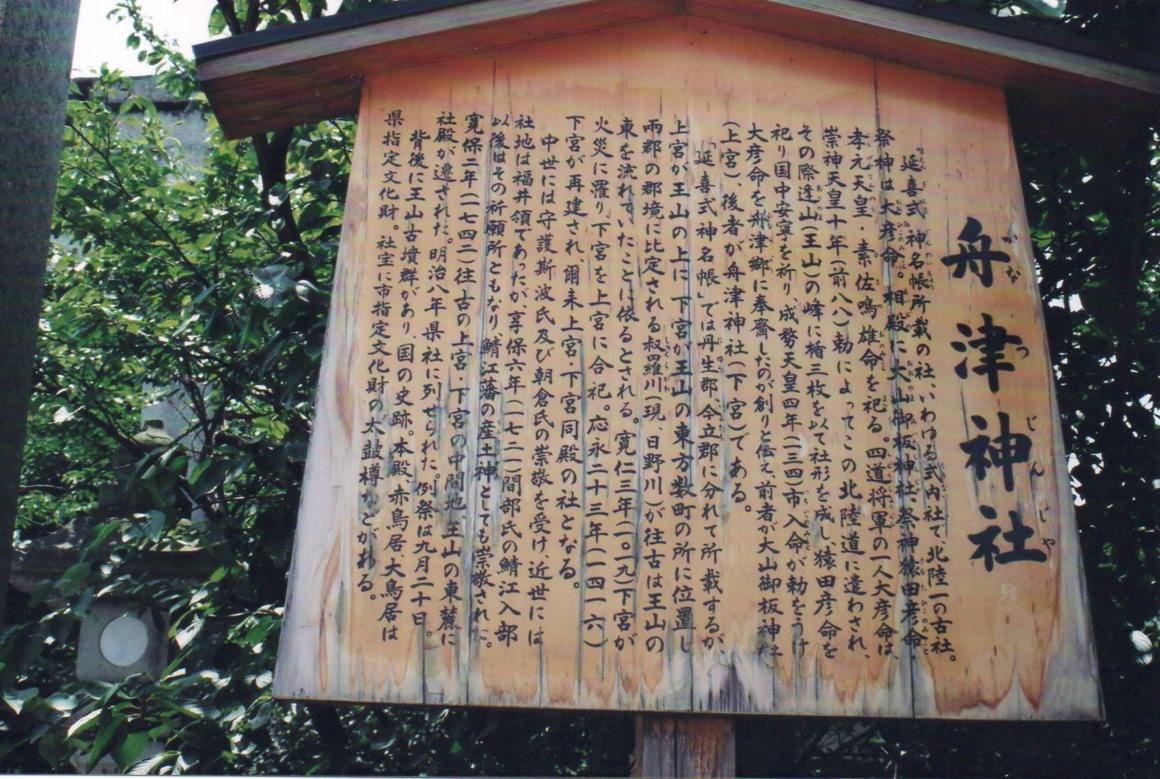 舟津神社
ふなつじんじゃ
『延喜式』神名帳所載の社、いわゆる式内社で、北陸一の古社。
祭神は大彦命。相殿に大山御板神社祭神猿田彦命、
孝元天皇・素佐鳴雄命を祀る。四道将軍の一人大彦命は、
崇神天皇十年(前八八)勅によってこの北陸道に遣わされ、
その際逢山(王山)の峰に楯三枚を以て社形を成し、猿田彦命を
祀り国中安寧を祈り、成務天皇四年(一三四)市入命が勅をうけ
大彦命を舟津郷に奉齋したのが創りと伝え、前者が大山御板神社
(上宮)、後者が舟津神社(下宮)である。
『延喜式神名帳』では丹生郡今立郡に分れて所載するが、
上宮が王山の上に、下宮が王山の東方数町の所に位置し
両郡の郡境に比定される叔羅川(現、日野川)が往古は王山の
東を流れていたことに依るとされる。寛仁三年(一〇一九)下宮が
火災に罹り、下宮を上宮に合祀。応永二十三年(一四一六)
下宮が再建され、爾来上宮、下宮同殿の社となる。
中世には守護斯波氏及び朝倉氏の崇敬を受け、近世には
社地は福井領であったが享保六年(一七二一)間部氏の鯖江入部
以後はその祈願所ともなり鯖江藩の産土神としても崇敬された。
寛保二年(一七四二)往古の上宮、下宮の中間地、王山の東麓に
社殿が遷された。明治八年県社に列せられた。例祭は九月二十日。
背後に王山古墳群があり(国の史跡。本殿、赤鳥居、大鳥居は
県指定文化財。社宝に市指定文化財の太鼓樽などがある。